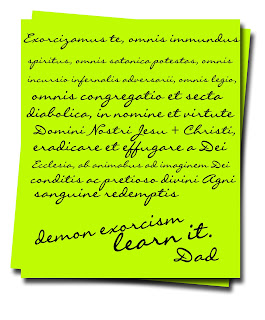 Exorcizamus te, omnis immundus
spiritus, omnis satanica potestas, omnis
incursio infernalis adversarii, omnis legio,
omnis congregatio et secta
diabolica, in nomine et virtute
Domini Nostri Jesu + Christi,
eradicare et effugare a Dei
Ecclesia, ab animabus ad imaginem Dei
conditis ac pretioso divini Agni
sanguine redemptis
demon exorcism
learn it.
Dad